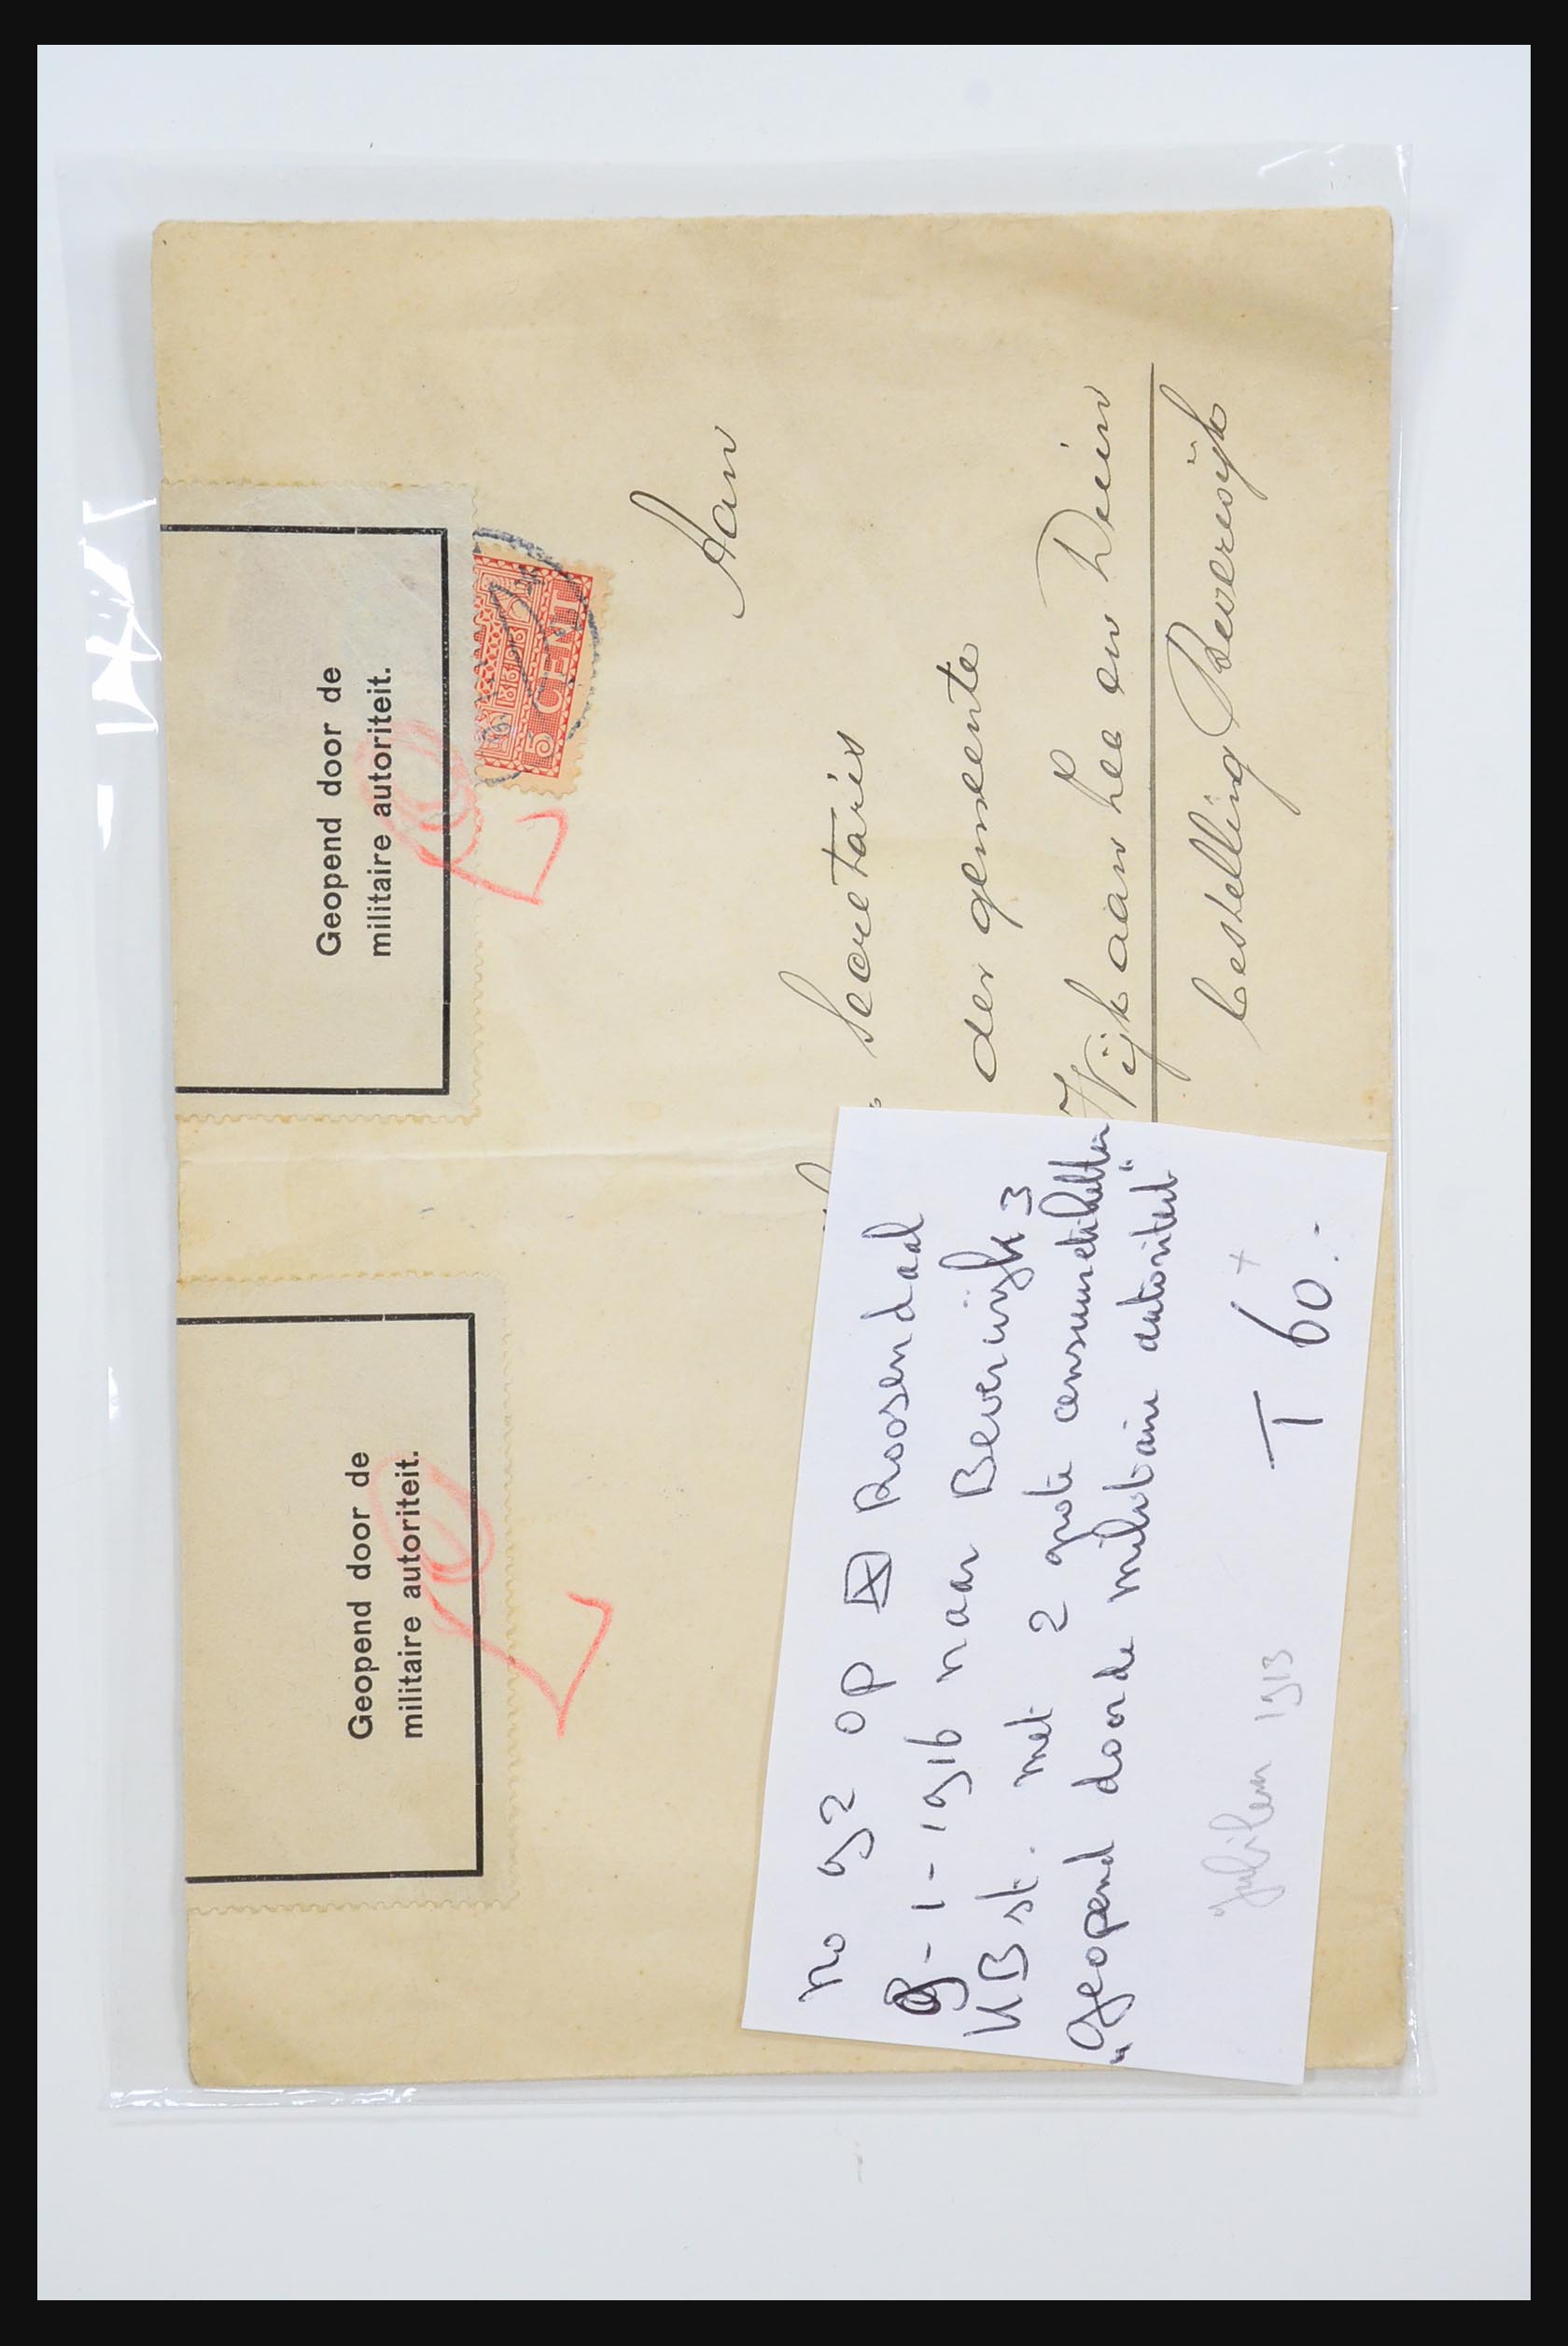 Geopend door de
militaire autoriteit.
Geopend door de
militaire autoriteit.
5 CENT
Aan
Secretaris
der gemeente
Wijk aan Zee en Duin
bestelling Beverwijk
no 92 op Roosendaal
9-1-1916 naar Beverwijk 3
KB st. met 2 grote censuuretiketten
"geopend door de militaire autoriteit"
T 60.-
Jubileum 1913